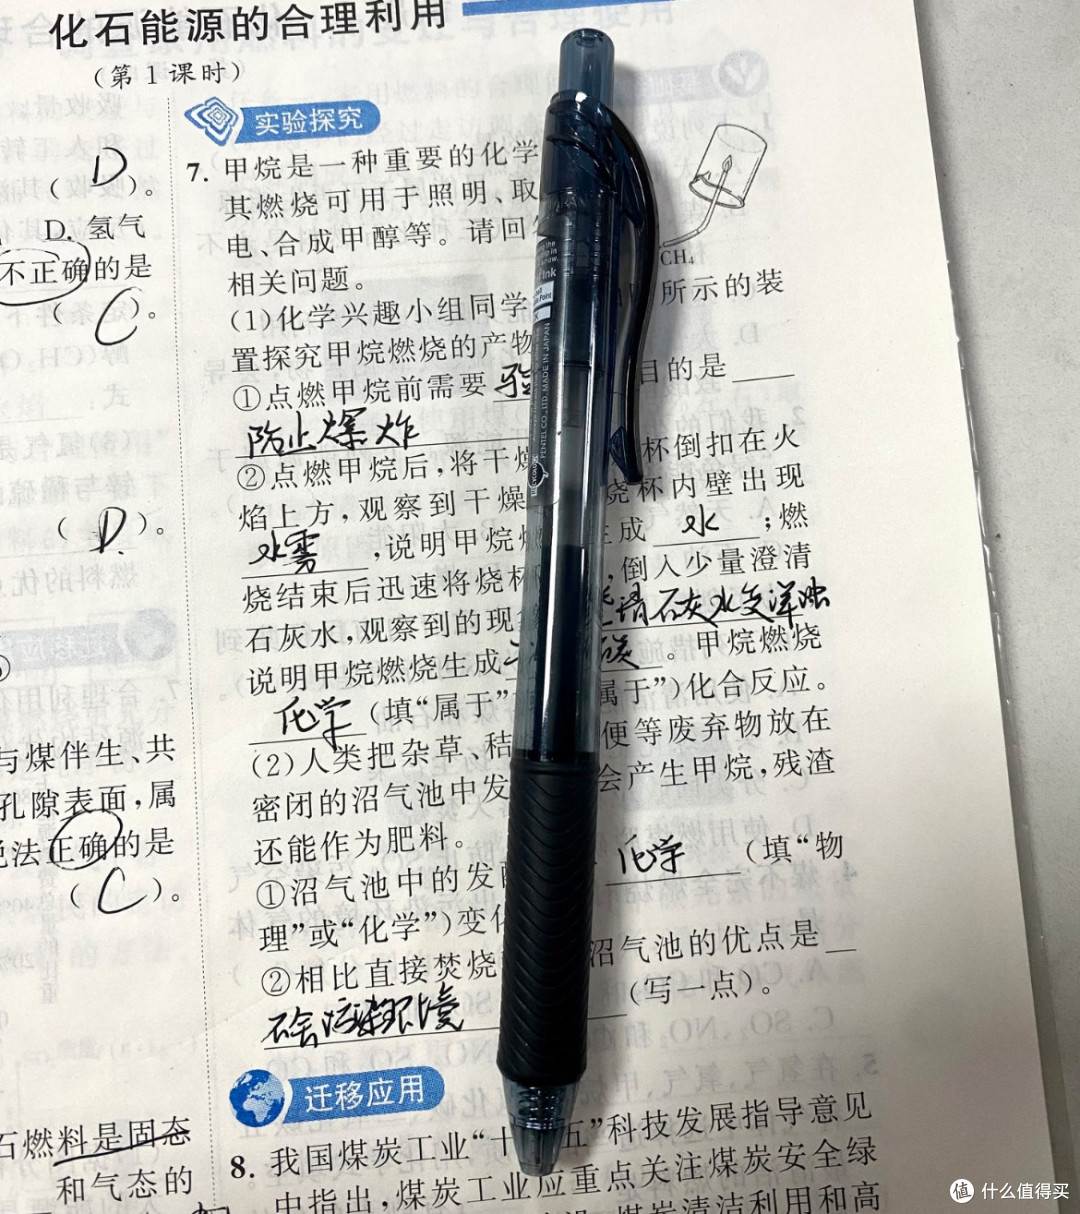 化石能源的合理利用
（第1课时）
实验探究
D
（ ）。
D. 氢气
不正确的是
（C）。
（D.）。
与煤伴生、共
孔隙表面，属
说法正确的是
（C）。
石燃料是固态
和气态的
7. 甲烷是一种重要的化学
其燃烧可用于照明、取
电、合成甲醇等。请回
相关问题。
CH4
(1)化学兴趣小组同学 所示的装
置探究甲烷燃烧的产物
①点燃甲烷前需要 验 目的是
防止爆炸
②点燃甲烷后，将干燥 杯倒扣在火
焰上方，观察到干燥 烧杯内壁出现
水雾，说明甲烷燃 生成 水；燃
烧结束后迅速将烧杯 ，倒入少量澄清
石灰水，观察到的现 清石灰水变浑浊
说明甲烷燃烧生成 碳。甲烷燃烧
化学（填“属于” 属于”）化合反应。
(2)人类把杂草、秸 便等废弃物放在
密闭的沼气池中发 会产生甲烷，残渣
还能作为肥料。
①沼气池中的发 化学（填“物
理”或“化学”）变化
②相比直接焚烧 沼气池的优点是
不会污染环境（写一点）。
PENTEL CO., LTD. MADE IN JAPAN
迁移应用
8. 我国煤炭工业“十 五”科技发展指导意见
中指出，煤炭工业应重点关注煤炭安全绿
煤炭清洁利用和高
值 什么值得买